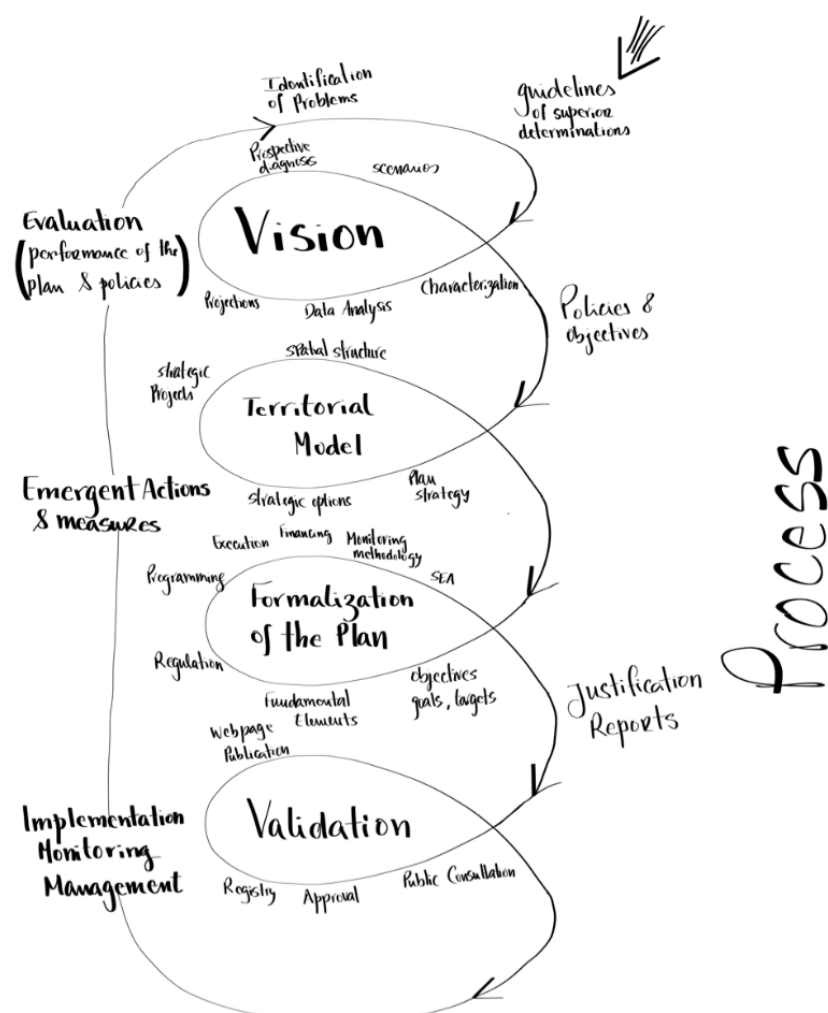 Identification
of Problems
guidelines
of superior
determinations
Prospective
diagnosis
scenarios
Evaluation
(performance of the
plan & policies)
Vision
Projections
Data Analysis
Characterization
Policies &
objectives
spatial structure
strategic
Projects
Territorial
Model
Emergent Actions
& measures
strategic options
Plan
strategy
Execution
Financing
Monitoring
methodology
SEA
Programming
Formalization
of the Plan
Regulation
objectives
goals, targets
Fundamental
Elements
Justification
Reports
Webpage
Publication
Validation
Implementation
Monitoring
Management
Registry
Approval
Public Consultation
Process